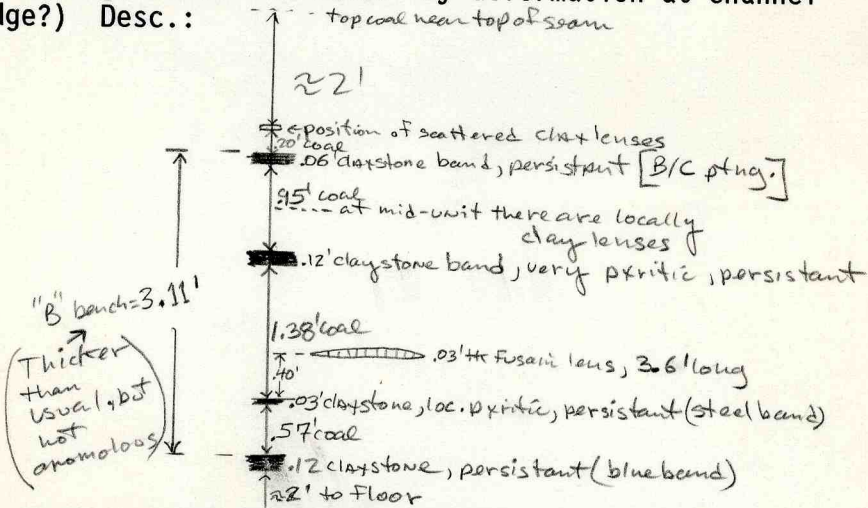 dge?) Desc.:
top coal near top of seam
≈2'
←position of scattered clay lenses
.20' coal
.06' claystone band, persistant [B/C ptng.]
.95' coal
at mid-unit there are locally
clay lenses
.12' claystone band, very pyritic, persistant
"B" bench=3.11'
(Thicker
than
usual, but
not
anomolous)
1.38' coal
.03' tk Fusain lens, 3.6' long
.40'
.03' claystone, loc. pyritic, persistant (steel band)
.57' coal
.12 claystone, persistant (blue band)
≈2' to floor